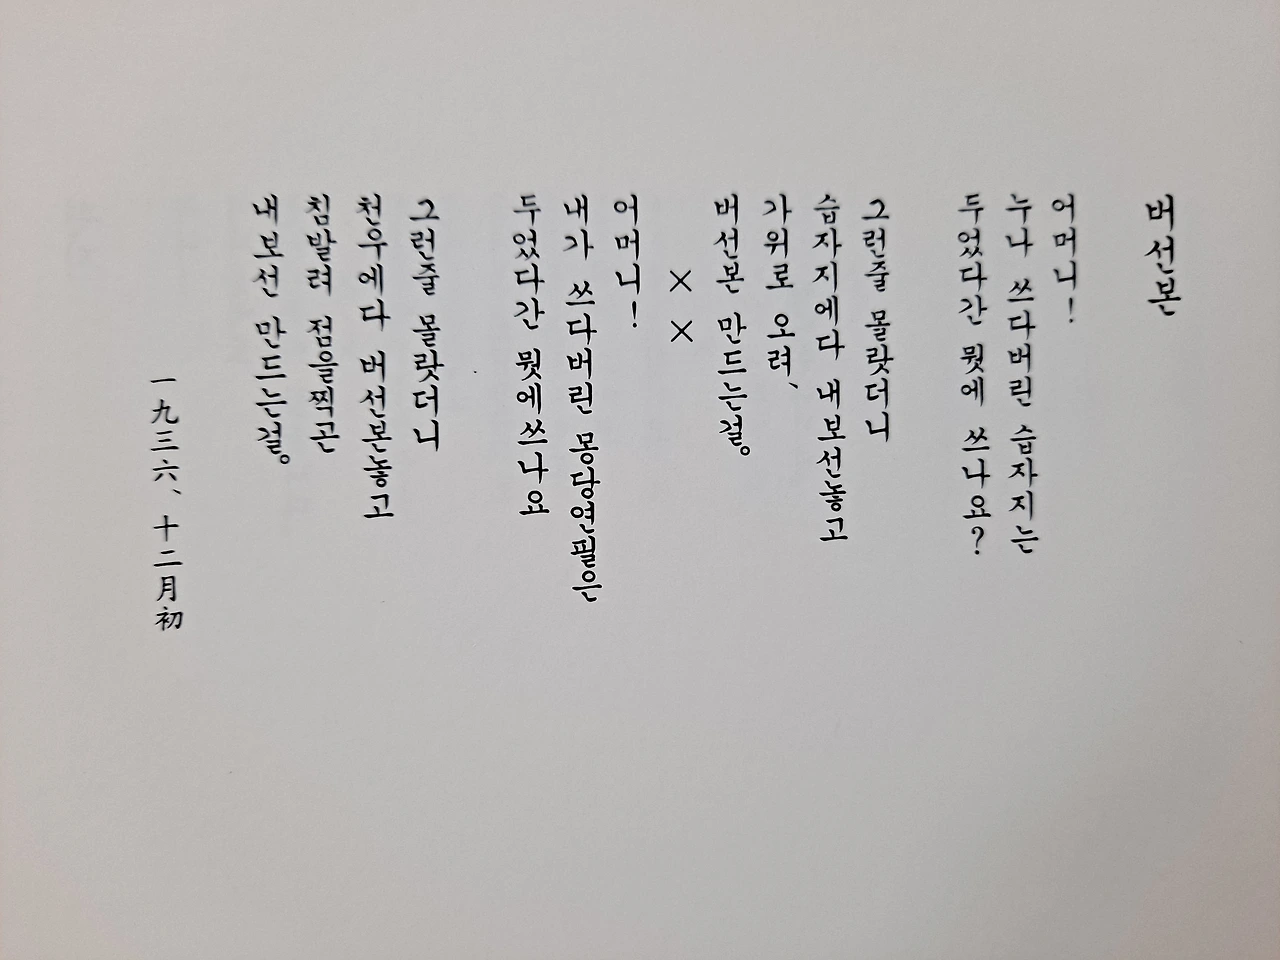 버선본
어머니!
누나 쓰다버린 습자지는
두었다간 뭣에 쓰나요?
그런줄 몰랏더니
습자지에다 내보선놓고
가위로 오려、
버선본 만드는걸。
××
어머니!
내가 쓰다버린 몽당연필은
두었다간 뭣에쓰나요
그런줄 몰랏더니
천우에다 버선본놓고
침발려 점을찍곤
내보선 만드는걸。
一九三六、十二月初